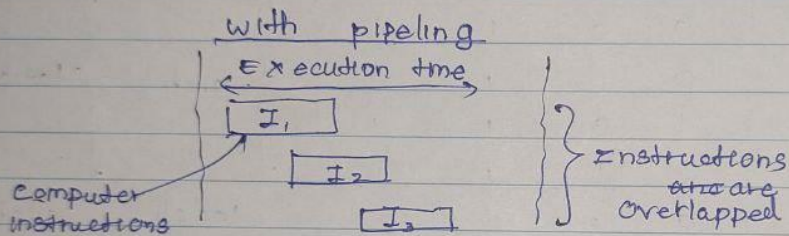 with pipeling
Execution tme
I₁
I₂
I₃
Computer
instructions
Instructions
are
overlapped